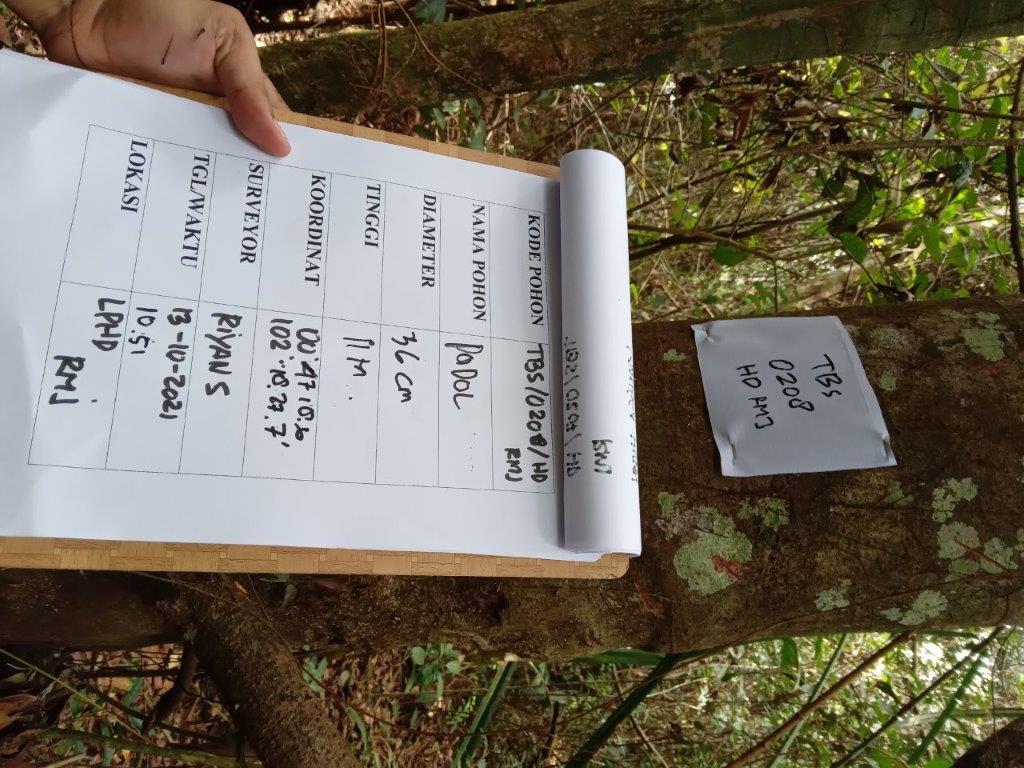 KODE POHON TBS/0208/HD
RMJ
NAMA POHON PODOL
DIAMETER 36 cm
TINGGI 11 m.
KOORDINAT 00° 47' 10.6
102° 10' 27.7'
SURVEYOR RiYAN S
TGL/WAKTU 13-10-2021
10.51
LOKASI LPHD
RMJ
TBS
0208
HD RMJ